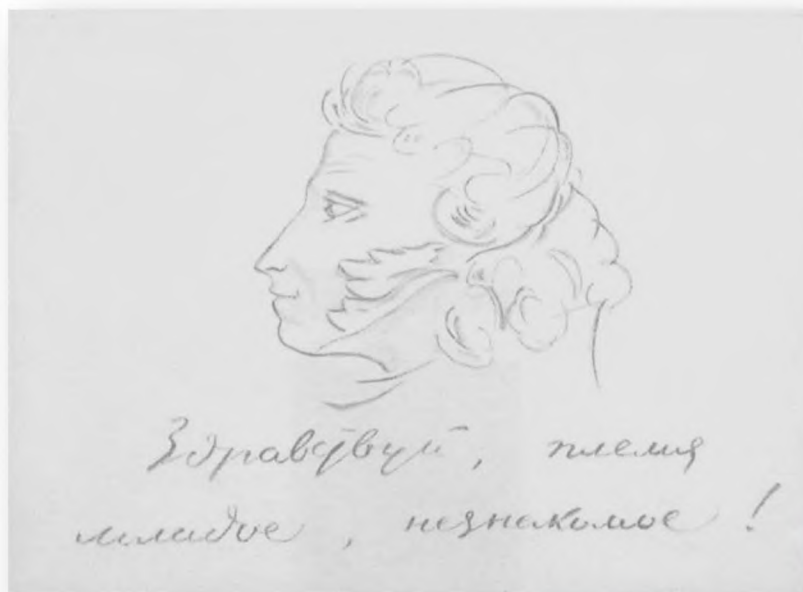 Здравствуй, племя
младое, незнакомое!